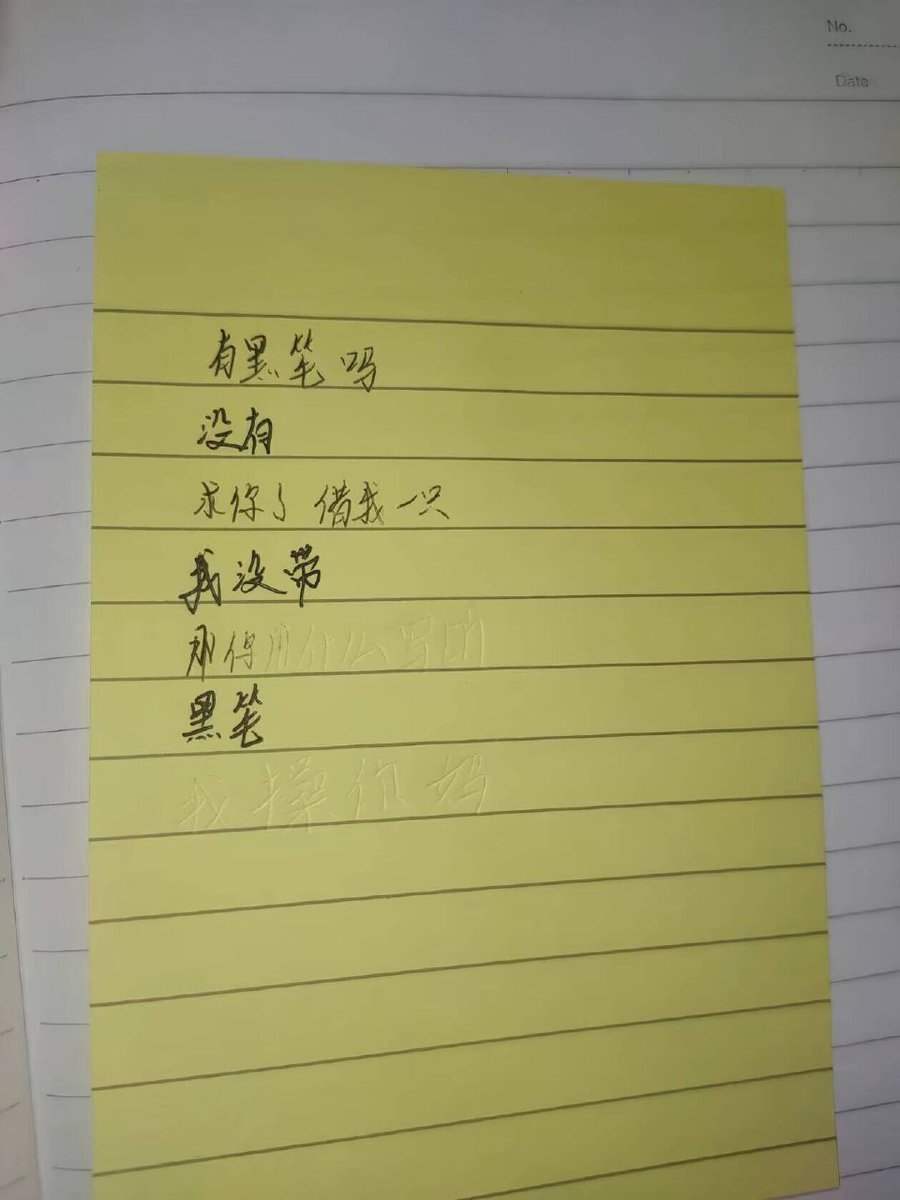 No.
Date
有黑笔吗
没有
求你了 借我一只
我没带
那你用什么写的
黑笔
我操你妈